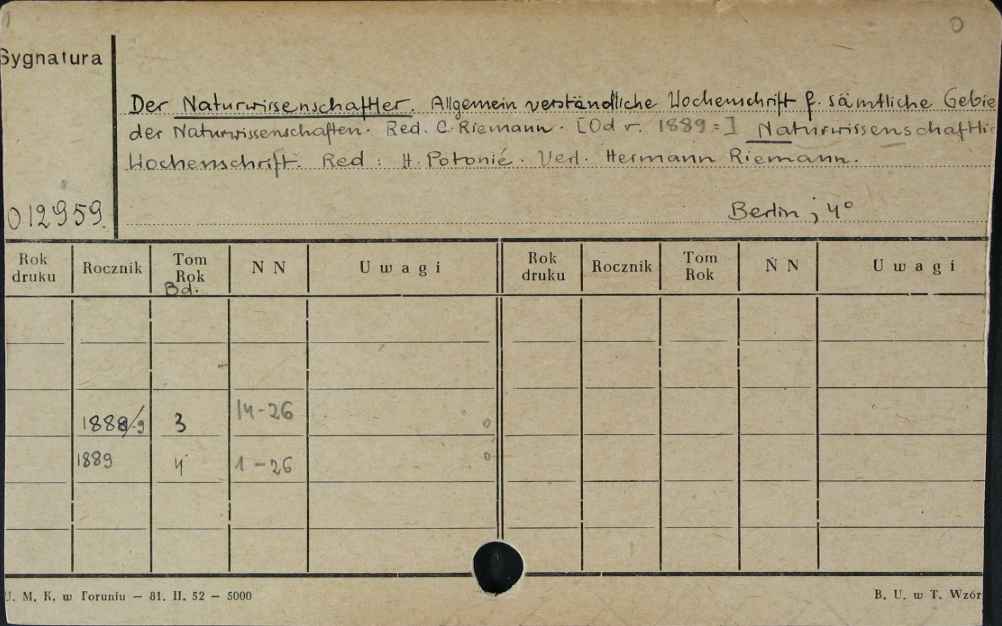 Sygnatura
Der Naturwissenschaftler. Allgemein verständliche Wochenschrift f. sämtliche Gebie
der Naturwissenschaften. Red. C. Riemann. [Od r. 1889:] Naturwissenschaftlic
Wochenschrift. Red: H. Potonié. Verl. Hermann Riemann.
012959.
Berlin; 4°
Rok druku Rocznik Tom Rok N N Uwagi Rok druku Rocznik Tom Rok N N Uwagi
Bd.
1888/9 3 14-26 0
1889 4 1-26 0
U. M. K. w Toruniu — 81. II. 52 — 5000
B. U. w T. Wzór